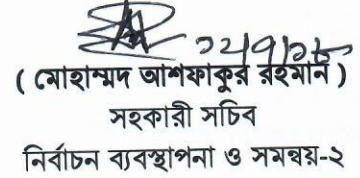 ১২/৭/১৮
( মোহাম্মদ আশফাকুর রহমান )
সহকারী সচিব
নির্বাচন ব্যবস্থাপনা ও সমন্বয়-২